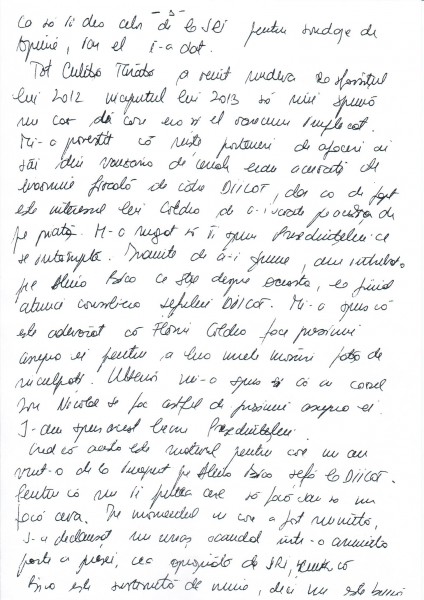 - 5 -
ca să îi dea celor de la SRI pentru sondaje de
opinie, iar el i-a dat.
Tot Culiță Tărâță a venit undeva la sfârșitul
lui 2012 începutul lui 2013 să-mi spună
un caz de care era și el oarecum implicat.
Mi-a povestit că niște parteneri de afaceri ai
săi din vânzarea de cereale erau acuzați de
evaziune fiscală de către DIICOT, dar că de fapt
este interesul lui Coldea de a-i scoate pe aceștia de
pe piață. M-a rugat să îi spun Președintelui ca
să intervină. Înainte de a-i spune, am întrebat-o
pe Alina Bica ce știe despre aceasta, ea fiind
atunci consiliera șefului DIICOT. Mi-a spus că
este adevărat că Florin Coldea face presiuni
asupra ei pentru a lua unele măsuri față de
inculpați. Ulterior mi-a spus și că în cazul
lui Nicolae se fac astfel de presiuni asupra ei.
I-am spus acest lucru Președintelui.
Cred că acesta este motivul pentru care nu au
vrut-o de la început pe Alina Bica șefă la DIICOT.
Pentru că nu îi putea cere să facă sau să nu
facă ceva. În momentul în care a fost numită,
s-a declanșat un uriaș scandal într-o anumită
parte a presei, cea apropiată de SRI, cum că
Bica este susținută de mine, deci nu este bună